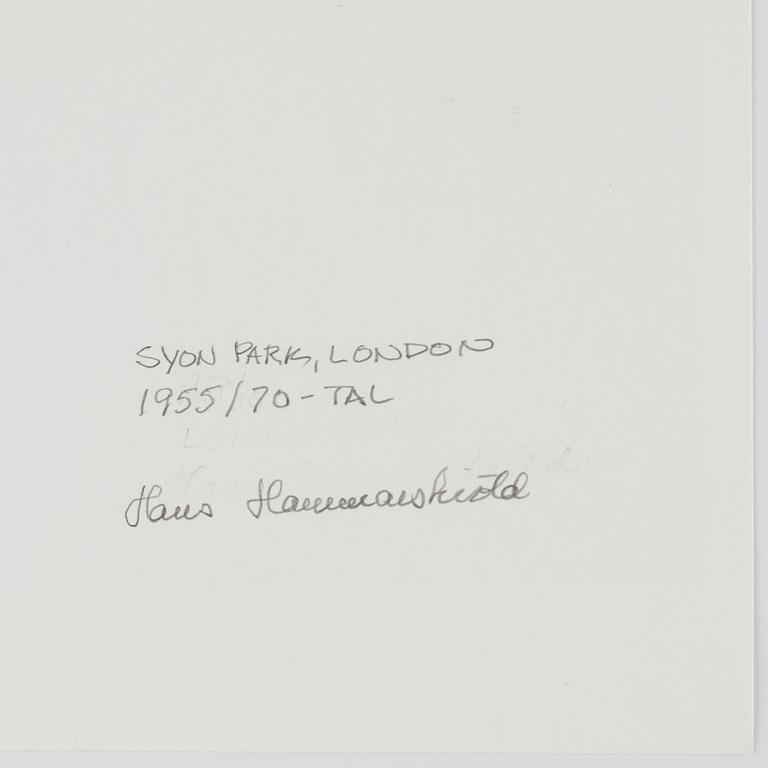 SYON PARK, LONDON
1955/70-TAL
Hans Hammarskiöld